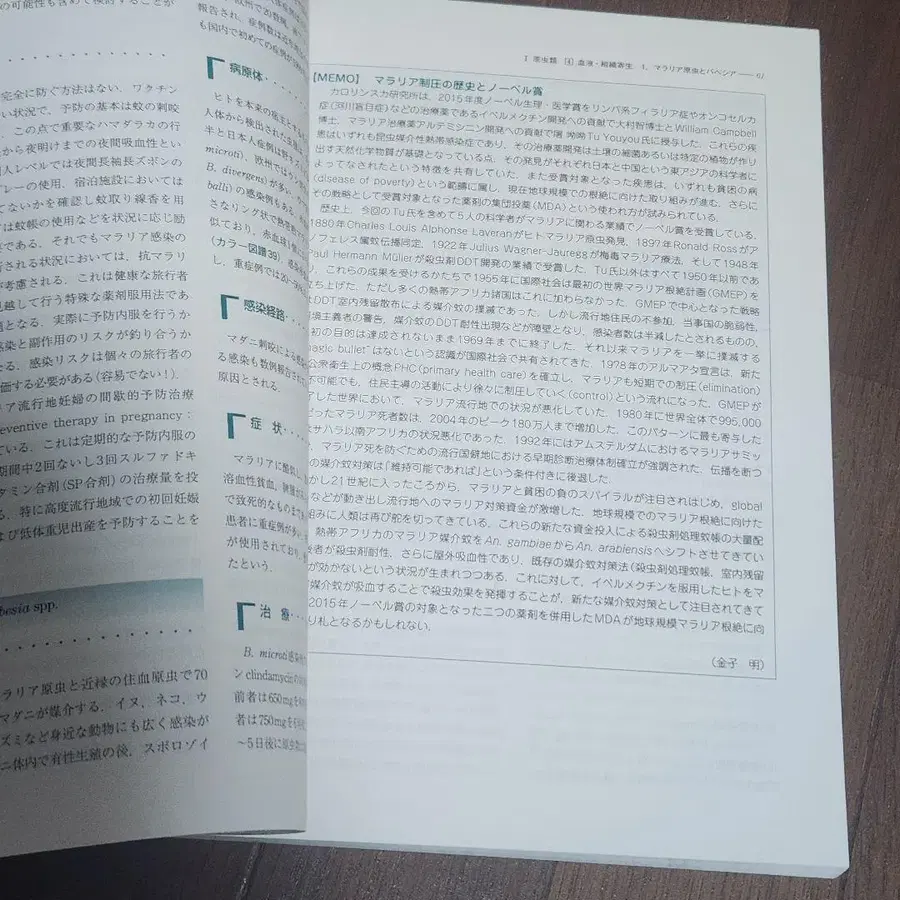 の可能性も含めて検討することが
完全に防ぐ方法はない．ワクチン
い状況で，予防の基本は蚊の刺咬
．この点で重要なハマダラカの行
から夜明けまでの夜間吸血性とい
人レベルでは夜間長袖長ズボンの
レーの使用，宿泊施設においては
てないかを確認し蚊取り線香を用
は蚊帳の使用などを状況に応じ励
である．それでもマラリア感染の
される状況においては，抗マラリ
が考慮される．これは健康な旅行者
見越して行う特殊な薬剤服用法であ
題となる．実際に予防内服を行うか
感染と副作用のリスクが釣り合うか
なる．感染リスクは個々の旅行者の
価する必要がある（容易でない！）．
リア流行地妊婦の間歇的予防治療
eventive therapy in pregnancy：
ている．これは定期的な予防内服の
期間中2回ないし3回スルファドキ
タミン合剤（SP合剤）の治療量を投
る．特に高度流行地域での初回妊娠
よび低体重児出産を予防することを
besia spp.
ラリア原虫と近縁の住血原虫で70
マダニが媒介する．イヌ，ネコ，ウ
ズミなど身近な動物にも広く感染が
ニ体内で有性生殖の後，スポロゾイ
報告され，症例数は近年
も国内で初めての症例が
病原体
ヒトを本来の宿主とする
人体から検出された虫種は
半と日本人症例は
microti)，欧州では
B. divergens)が多い．
balli)の感染例もある．
さなリング状で熱帯熱
似ており，赤血球1個
（カラー図譜39）．感染
し，重症例では20〜
感染経路
マダニ刺咬による感染
る感染も数例報告され
原因とされる．
症 状
マラリアに酷似し
溶血性貧血，脾腫が
で致死的なものまで
患者に重症例が多い
が使用されており，
たという．
治 療
B. microti感染
ンclindamycinの
前者は650mgを
者は750mgを
〜5日後に原虫
I 原虫類 [4] 血液・組織寄生 1．マラリア原虫とバベシア── 67
【MEMO】 マラリア制圧の歴史とノーベル賞
カロリンスカ研究所は，2015年度ノーベル生理・医学賞をリンパ系フィラリア症やオンコセルカ
症（河川盲目症）などの治療薬であるイベルメクチン開発への貢献で大村智博士とWilliam Campbell
博士，マラリア治療薬アルテミシニン開発への貢献で屠 呦呦Tu Youyou氏に授与した．これらの疾
患はいずれも昆虫媒介性熱帯感染症であり，その治療薬開発は土壌の細菌あるいは特定の植物が作り
出す天然化学物質が基礎となっている点，その発見がそれぞれ日本と中国という東アジアの科学者に
よってなされたという特徴を共有していた．また受賞対象となった疾患は，いずれも貧困の病
(disease of poverty)という範疇に属し，現在地球規模での根絶に向けた取り組みが進む．さらに
その戦略として受賞対象となった薬剤の集団投薬（MDA）という使われ方が試みられている．
歴史上，今回のTu氏を含めて5人の科学者がマラリアに関わる業績でノーベル賞を受賞している．
1880年Charles Louis Alphonse Laveranがヒトマラリア原虫発見，1897年Ronald Rossがア
ノフェレス属蚊伝播同定，1922年Julius Wagner-Jaureggが梅毒マラリア療法，そして1948年
Paul Hermann Müllerが殺虫剤DDT開発の業績で受賞した．Tu氏以外はすべて1950年以前であ
り，これらの成果を受けるかたちで1955年に国際社会は最初の世界マラリア根絶計画（GMEP）を
立ち上げた．ただし多くの熱帯アフリカ諸国はこれに加わらなかった．GMEPで中心となった戦略
はDDT室内残留散布による媒介蚊の撲滅であった．しかし流行地住民の不参加，当事国の脆弱性，
環境主義者の警告，媒介蚊のDDT耐性出現などが障壁となり，感染者数は半減したとされるものの，
初の目的は達成されないまま1969年までに終了した．それ以来マラリアを一挙に撲滅する
magic bullet”はないという認識が国際社会で共有されてきた．1978年のアルマアタ宣言は，新た
公衆衛生上の概念PHC（primary health care）を確立し，マラリアも短期での制圧（elimination）
不可能でも，住民主導の活動により徐々に制圧していく（control）という流れになった．GMEPが
アした世界において，マラリア流行地での状況が悪化していた．1980年に世界全体で995,000
だったマラリア死者数は，2004年のピーク180万人まで増加した．このパターンに最も寄与した
サハラ以南アフリカの状況悪化であった．1992年にはアムステルダムにおけるマラリアサミッ
，マラリア死を防ぐための流行国僻地における早期診断治療体制確立が強調された．伝播を断つ
の媒介蚊対策は「維持可能であれば」という条件付きに後退した．
かし21世紀に入ったころから，マラリアと貧困の負のスパイラルが注目されはじめ，global
などが動き出し流行地へのマラリア対策資金が激増した．地球規模でのマラリア根絶に向けた
組みに人類は再び舵を切ってきている．これらの新たな資金投入による殺虫剤処理蚊帳の大量配
，熱帯アフリカのマラリア媒介蚊をAn. gambiaeからAn. arabiensisへシフトさせてきてい
後者が殺虫剤耐性，さらに屋外吸血性であり，既存の媒介蚊対策法（殺虫剤処理蚊帳，室内残留
が効かないという状況が生まれつつある．これに対して，イベルメクチンを服用したヒトをマ
媒介蚊が吸血することで殺虫効果を発揮することが，新たな媒介蚊対策として注目されてきて
2015年ノーベル賞の対象となった二つの薬剤を併用したMDAが地球規模マラリア根絶に向
り札となるかもしれない．
（金子 明）